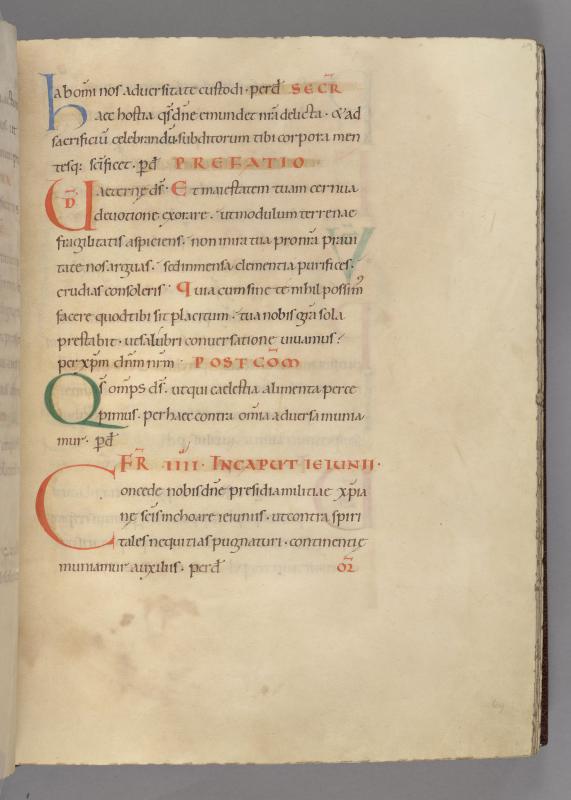 ab om̄i nos aduersitate custodi · perd̄ SECR̄
Haec hostia qs̄ dn̄e emundet nr̄a delicta · & ad
sacrificiū celebrandū subditorum tibi corpora men
tesq; sc̄ificet · p̄d̄ PREFATIO
UD̄ aeternę ds̄ · Et maiestatem tuam cernua
deuotione exorare · ut modulum terrenae
fragilitatis aspiciens · non in ira tua pro nr̄a praui
tate nos arguas · sed inmensa clementia purifices ·
erudias consoleris · Quia cum sine te nihil possim᾽
facere quod tibi sit placitum · tua nobis gr̄a sola
prestabit · ut salubri conuersatione uiuamus ·
per xp̄m dn̄m nr̄m · POSTCOM̄
Qs̄ omp̄s ds̄ · ut qui caelestia alimenta perce
pimus · per haec contra om̄ia aduersa munia
mur · p̄d̄
FR̄ IIII · IN CAPUT IEIUNII ·
Concede nobis dn̄e presidia militiae xp̄ia
nę sc̄is inchoare ieiuniis · ut contra spiri
tales nequitias pugnaturi · continentię
muniamur auxiliis · perd̄ OR̄